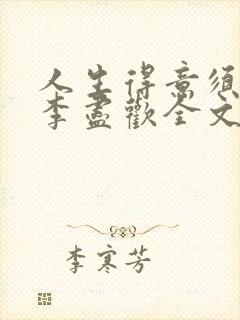 人生得意须
李盡歡全文
李寒芳